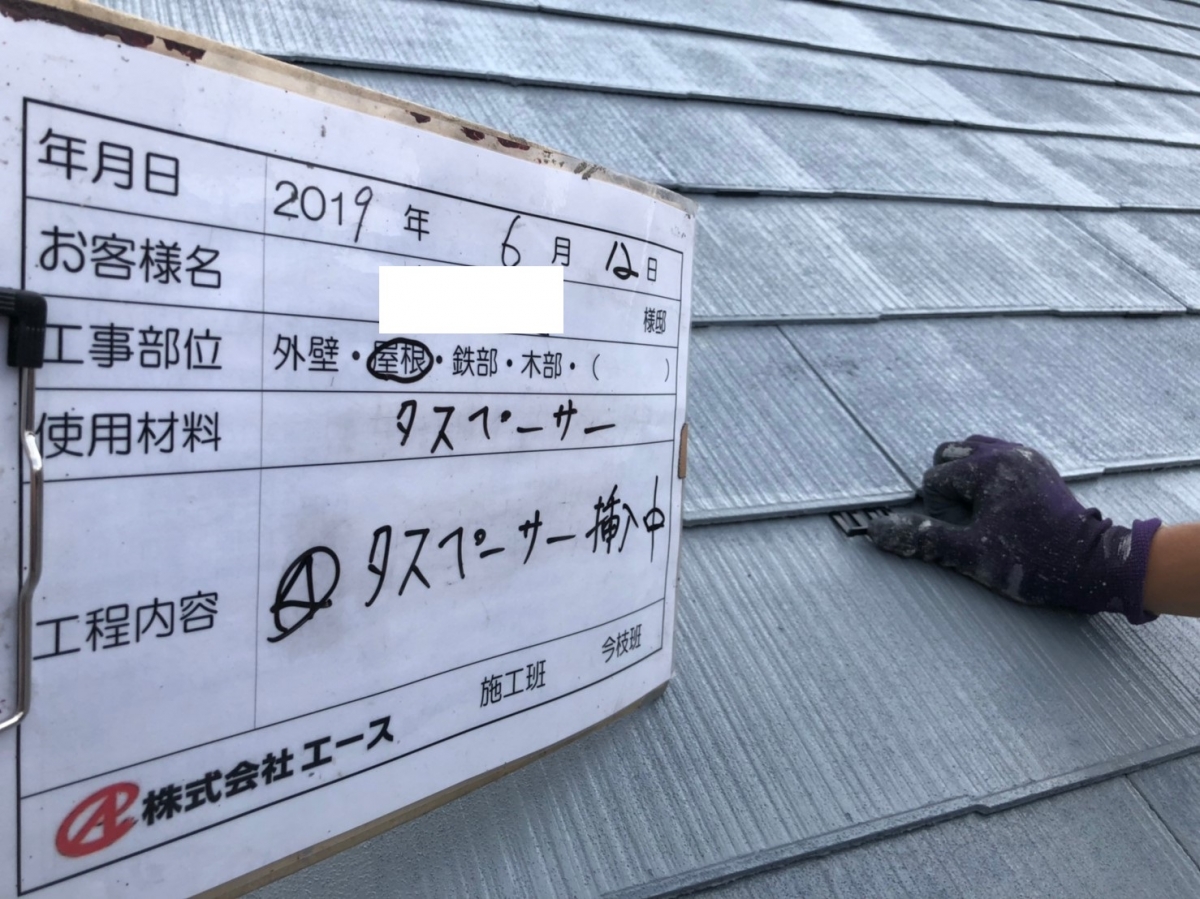 年月日 2019 年 6 月 12 日
お客様名 様邸
工事部位 外壁・屋根・鉄部・木部・( )
使用材料 タスペーサー
工程内容 タスペーサー挿入中
施工班 今枝班
株式会社エース